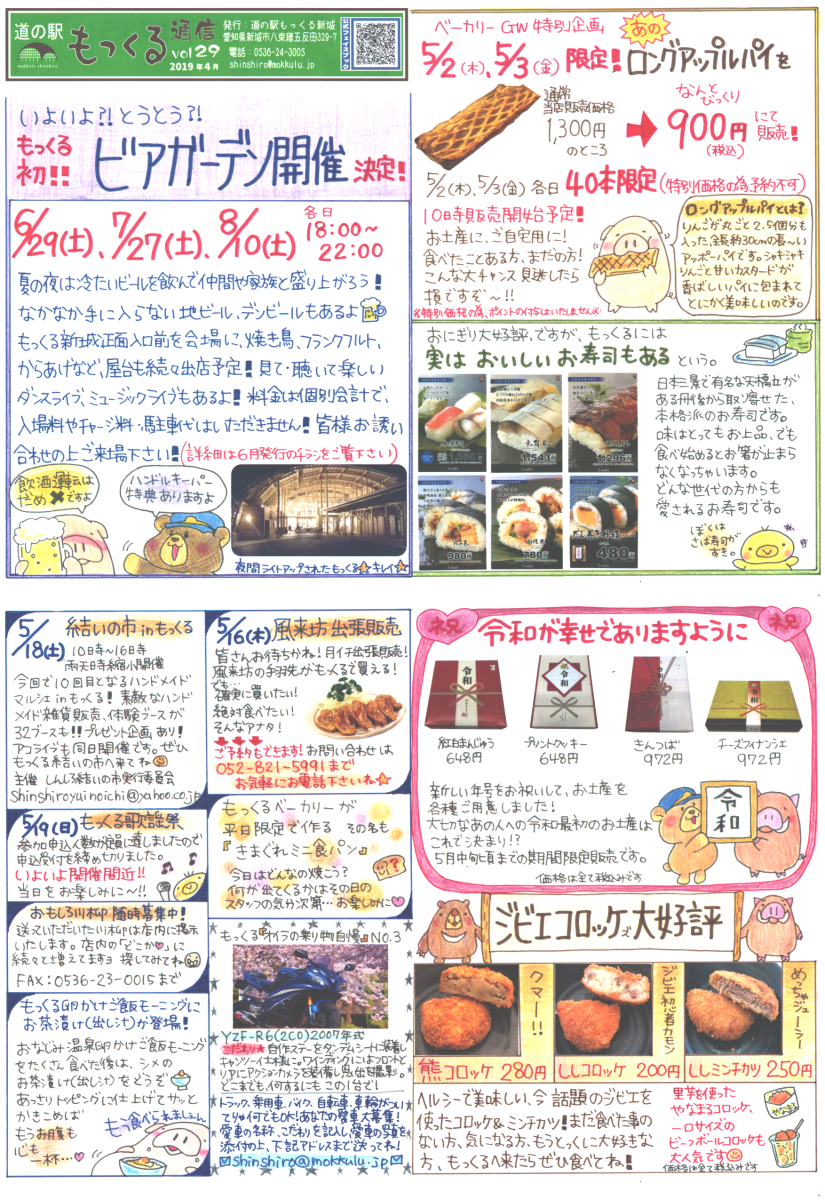 道の駅
もっくる
mokkulu shinshiro
もっくる通信
vol 29
2019年4月
発行:道の駅もっくる新城
愛知県新城市八束穂五反田329-7
電話:0536-24-3005
shinshiro@mokkulu.jp
公式フェイスブック
いよいよ?!とうとう?!
もっくる初!!
ビアガーデン開催決定!
6/29(土)、7/27(土)、8/10(土)
各日
18:00~
22:00
夏の夜は冷たいビールを飲んで仲間や家族と盛り上がろう!
なかなか手に入らない地ビール、デンビールもあるよ
もっくる新城正面入口前を会場に、焼き鳥、フランクフルト、
からあげなど、屋台も続々出店予定!見て・聴いて楽しい
ダンスライブ、ミュージックライブもあるよ!料金は個別会計で、
入場料やチャージ料・駐車代はいただきません!皆様お誘い
合わせの上ご来場下さい!(詳細は6月発行のチラシをご覧下さい)
飲酒運転は
だめ✖ですよ
ハンドルキーパー
特典ありますよ
夜間ライトアップされたもっくる☆キレイ☆
ベーカリー GW特別企画
5/2(木)、5/3(金)限定!
あの
ロングアップルパイを
通常
当店販売価格
1,300円
のところ
なんと
びっくり
900円
(税込)
にて
販売!
5/2(木)、5/3(金)各日40本限定(特別価格の為予約不可)
10時販売開始予定!
お土産に、ご自宅用に!
食べたことある方、まだの方!
こんな大チャンス見逃したら
損ですぞ~!!
※特別価格の為、ポイントの付与はいたしません※
ロングアップルパイとは?
りんごが丸ごと2.5個分も
入った、全長約30cmの長~い
アッポーパイです。シャキシャキ
りんごと甘いカスタードが
香ばしいパイに包まれて
とにかく美味しいのです。
おにぎり大好評、ですが、もっくるには
実はおいしいお寿司もあるという。
1,543円
1,296円
980円
780円
480円
日本三景で有名な天橋立が
ある丹後から取り寄せた、
本格派のお寿司です。
味はとってもお上品、でも
食べ始めるとお箸が止まら
なくなっちゃいます。
どんな世代の方からも
愛されるお寿司です。
ぼくは
さば寿司が
すき。
5/18(土)
結いの市 in もっくる
10日寺~16日寺
雨天時縮小開催
今回で10回目となるハンドメイド
マルシェinもっくる!素敵なハンド
メイド雑貨販売、体験ブースが
32ブースも!!プレゼント企画あり!
アコライブも同日開催です。ぜひ
もっくる結いの市へ来てね
主催 しんしろ結いの市実行委員会
Shinshiroyuinoichi@yahoo.co.jp
5/19(日)もっくる歌謡祭
参加申込人数が定員に達しましたので
申込受付を締め切りました。
いよいよ開催間近!!
当日をお楽しみに~!!
おもしろ川柳 随時募集中!
送っていただいた川柳は店内に掲示
いたします。店内の「どこか♥」に
続々と増えてますョ 探してみてね
FAX:0536-23-0015まで
もっくる卵かけご飯モーニングに
お茶漬け(出し汁)が登場!
おなじみ温泉卵かけご飯モーニング
をたくさん食べた後は、シメの
お茶漬け(出し汁)をどうぞ
あっさりトッピングに仕上げてサッと
かきこめば
もうお腹も
心も
一杯…♥
もう食べられましぇん
5/16(木)風来坊 出張販売
皆さんお待ちかね!月イチ出張販売!
風来坊の手羽先がもっくるで買える!
でも…
確実に買いたい!
絶対食べたい!
そんなアナタ!
ご予約もできます!お問い合わせは
052-821-5991まで
お気軽にお電話下さいね☆
もっくるベーカリーが
平日限定で作る その名も
『きまぐれミニ食パン』
今日はどんなの焼こう?
何が出てくるかはその日の
スタッフの気分次第…お楽しみに♥
もっくる『オイラの乗り物自慢』No.3
YZF-R6(2CO)2007年式
こだわり★自作ステーをタンデムシートに装着し
キャンツー仕様に。ツーリングにはフロントと
リアにアクションカメラを装備し思い出を撮影。
どこまでも、何するにもこの1台で!
トラック、乗用車、バイク、自転車、車輪がつい
てりゃ何でもOK!あなたの愛車大募集!
愛車の名称、こだわりを記入し愛車の写真を
添付の上、下記アドレスまで送ってね!
shinshiro@mokkulu.jp
祝
令和が幸せでありますように
祝
令和
令和
令和
令和
紅白まんじゅう
648円
プリントクッキー
648円
きんつば
972円
チーズフィナンシェ
972円
新しい年号をお祝いして、お土産を
各種ご用意しました!
大切なあの人への令和最初のお土産は
これで決まり!?
5月中旬頃までの期間限定販売です。
価格は全て税込みです
令和
ジビエコロッケズ大好評
クマー!!
ジビエ初心者カモン
めっちゃジューシー
熊コロッケ 280円
ししコロッケ 200円
ししミンチカツ 250円
ヘルシーで美味しい、今話題のジビエを
使ったコロッケ&ミンチカツ!まだ食べた事の
ない方、気になる方、もうとっくに大好きな
方、もっくる来たらぜひ食べてね!
里芋を使った
やなまるコロッケ、
一口サイズの
ビーフボールコロッケも
大人気です
価格は全て税込みです
やなまる